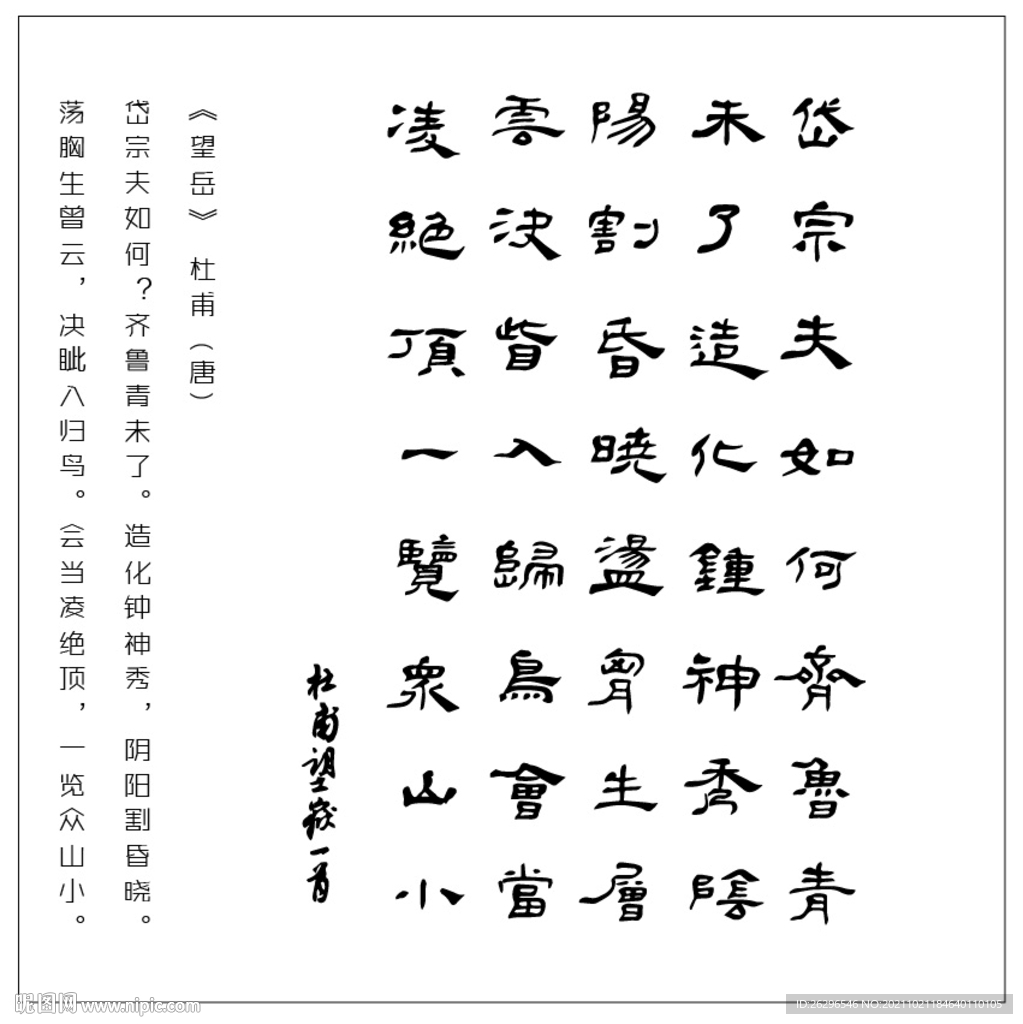 岱宗夫如何齊魯青
未了造化鍾神秀陰
陽割昏曉盪胷生層
雲決眥入歸鳥會當
凌絕頂一覽眾山小
杜甫望嶽一首
《望岳》 杜甫（唐）
岱宗夫如何？齐鲁青未了。造化钟神秀，阴阳割昏晓。
荡胸生曾云，决眦入归鸟。会当凌绝顶，一览众山小。
昵图网 www.nipic.com
ID:26296546 NO:20211021184640110105